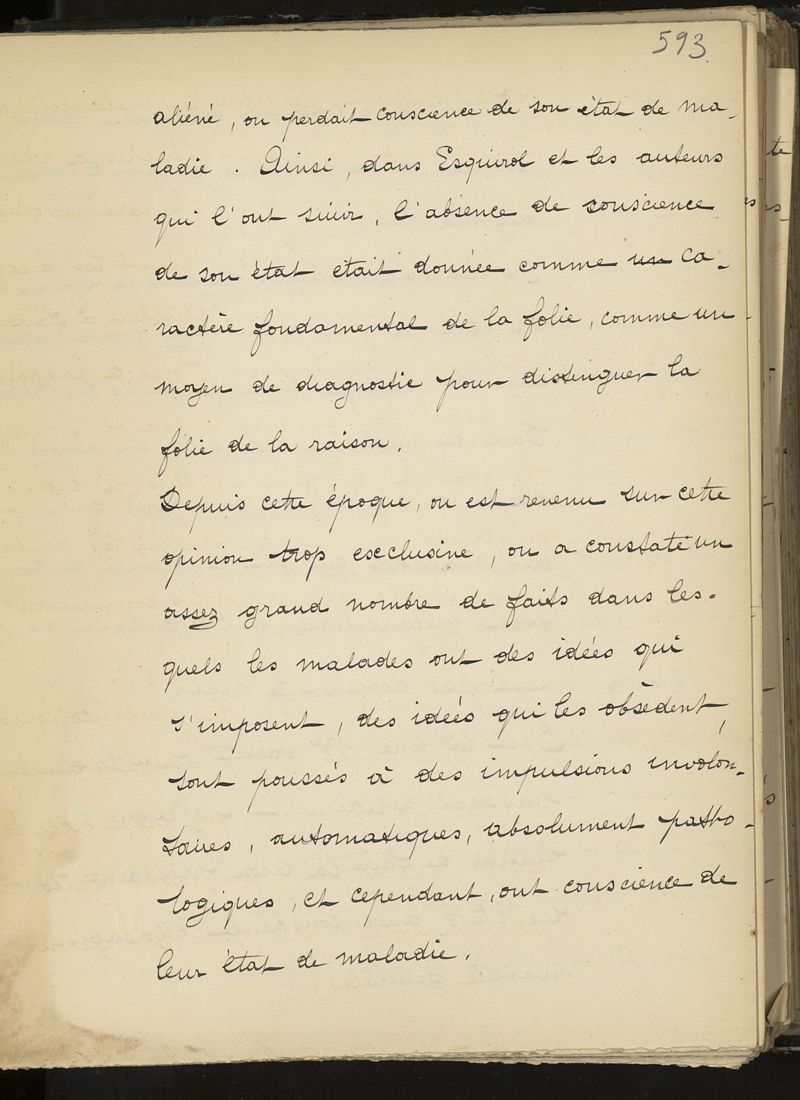 593
aliéné, on perdait conscience de son état de ma-
ladie. Ainsi, dans Esquirol et les auteurs
qui l'ont suivi, l'absence de conscience
de son état était donnée comme un ca-
ractère fondamental de la folie, comme un
moyen de diagnostic pour distinguer la
folie de la raison.
Depuis cette époque, on est revenu sur cette
opinion trop exclusive, on a constaté un
assez grand nombre de faits dans les-
quels les malades ont des idées qui
s'imposent, des idées qui les obsèdent,
sont poussés à des impulsions involon-
taires, automatiques, absolument patho-
logiques, et cependant, ont conscience de
leur état de maladie.